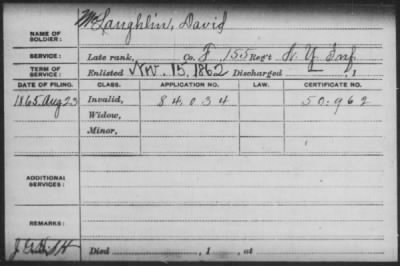 McLaughlin, David
NAME OF SOLDIER:
SERVICE: Late rank, Co. F 155 Reg't N. Y. Inf.
TERM OF SERVICE: Enlisted Nov. 15, 1862 Discharged , 1
DATE OF FILING. CLASS. APPLICATION NO. LAW. CERTIFICATE NO.
1865 Aug 23 Invalid, 84,034 50,962
Widow,
Minor,
ADDITIONAL SERVICES:
REMARKS:
Died , 1 , at